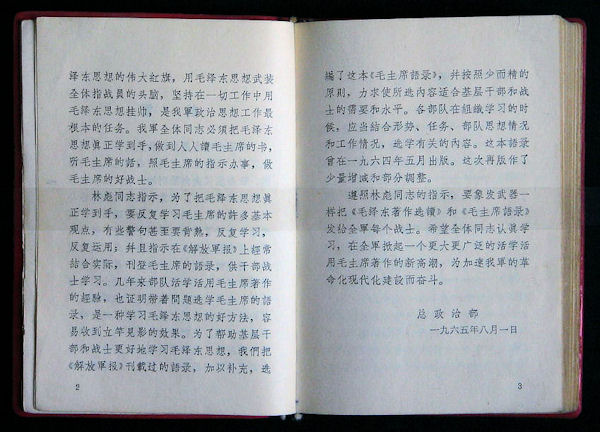 泽东思想的伟大红旗，用毛泽东思想武装
全体指战员的头脑，坚持在一切工作中用
毛泽东思想挂帅，是我軍政治思想工作最
根本的任务。我軍全体同志必須把毛泽东
思想眞正学到手，做到人人讀毛主席的书，
听毛主席的話，照毛主席的指示办事，做
毛主席的好战士。
林彪同志指示，为了把毛泽东思想眞
正学到手，要反复学习毛主席的許多基本
观点，有些警句甚至要背熟，反复学习，
反复运用；幷且指示在《解放軍报》上經常
結合实际，刊登毛主席的語录，供干部战
士学习。几年来部队活学活用毛主席著作
的經驗，也证明带着問題选学毛主席的語
录，是一种学习毛泽东思想的好方法，容
易收到立竿見影的效果。为了帮助基层干
部和战士更好地学习毛泽东思想，我們把
《解放軍报》刊載过的語录，加以补充，选
2
編了这本《毛主席語录》，幷按照少而精的
原則，力求使所选內容适合基层干部和战
士的需要和水平。各部队在組織学习的时
候，应当結合形势、任务、部队思想情况
和工作情况，选学有关的內容。这本語录
曾在一九六四年五月出版。这次再版作了
少量增减和部分調整。
遵照林彪同志的指示，要象发武器一
样把《毛泽东著作选讀》和《毛主席語录》
发給全軍每个战士。希望全体同志认眞学
习，在全軍掀起一个更大更广泛的活学活
用毛主席著作的新高潮，为加速我軍的革
命化现代化建設而奋斗。
总政治部
一九六五年八月一日
3